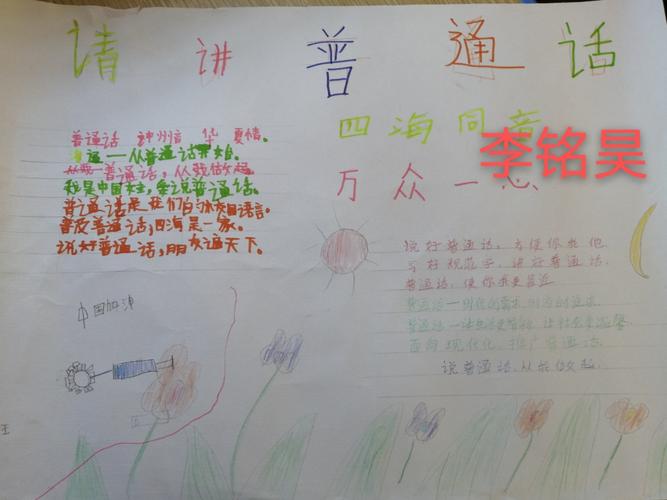 请讲普通话
四海同音
李铭昊
万众一心
普通话 神州音 华夏情。
运一从普通话开始。
从我普通话，从我做起。
我是中国娃，爱说普通话。
普通话是我们的校园语言。
普及普通话，四海是一家。
说好普通话，朋友遍天下。
中国加油
说好普通话，方便你我他
写好规范字，讲好普通话．
普通话，使你我更亲近
普通话一时代的需求，时尚的追求．
普通话一让生活更精彩，让社会更温馨
面向现代化，推广普通话．
说普通话，从我做起．
王